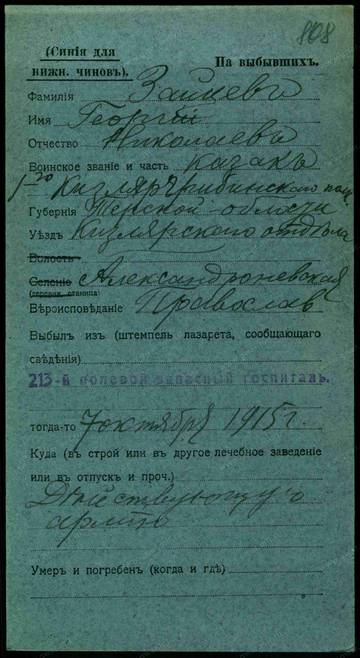 808
(Синія для
нижн. чиновъ).
На выбывшихъ.
Фамилія Зайцевъ
Имя Георгій
Отчество Николаевъ
Воинское званіе и часть казакъ
1-го Кизляргребинскаго полк.
Губернія Терской области
Уѣздъ Кизлярскаго отдѣла
Волость
Селеніе Александроневская
(деревня, станица)
Вѣроисповѣданіе Православ
Выбылъ изъ (штемпель лазарета, сообщающаго
свѣдѣнія)
213-й полевой запасный госпиталь.
тогда-то 7 октября 1915 г.
Куда (въ строй или въ другое лечебное заведеніе
или въ отпускъ и проч.)
Дѣйствующую
армію
Умеръ и погребенъ (когда и гдѣ)